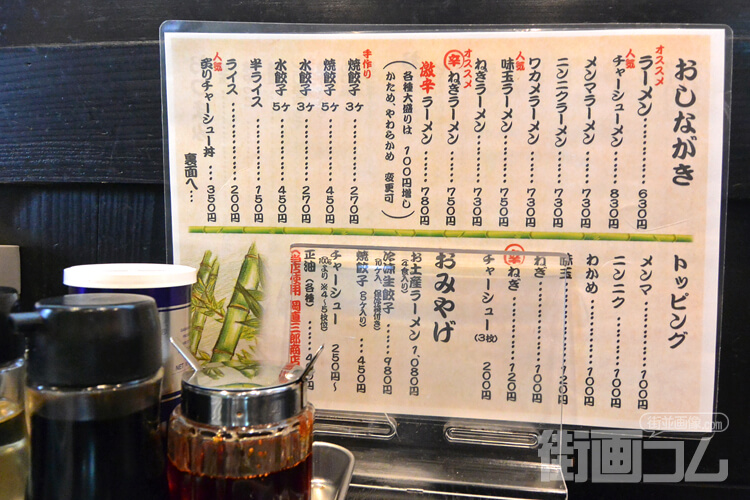 おしながき
オススメ
ラーメン 630円
人気
チャーシューメン 830円
メンマラーメン 730円
ニンニクラーメン 730円
ワカメラーメン 730円
人気
味玉ラーメン 750円
ねぎラーメン 730円
オススメ
辛ねぎラーメン 750円
激辛ラーメン 780円
(各種大盛りは 100円増し
かため、やわらかめ 変更可)
手作り
焼餃子 3ケ 270円
焼餃子 5ケ 450円
水餃子 3ケ 270円
水餃子 5ケ 450円
半ライス 150円
ライス 200円
人気
炙りチャーシュー丼 350円
裏面へ…
トッピング
メンマ 100円
ニンニク 100円
わかめ 100円
味玉 120円
ねぎ 100円
辛ねぎ 120円
チャーシュー(3枚) 200円
おみやげ
お土産ラーメン 1,080円
(4食入り)
冷凍生餃子 980円
焼餃子(8ケ入り) 450円
チャーシュー 250円〜
100gより ※4〜5枚位
正油(各種)
街並画像.com
街画コム